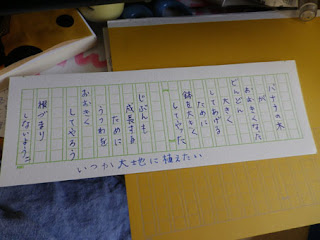 バナナの木
が
おおきくなった
どんどん
大きく
してあげる
ために
鉢を大きく
してやった
じぶんも
成長する
ために
うつわを
おおきく
してやろう
根づまり
しないように
いつか大地に植えたい